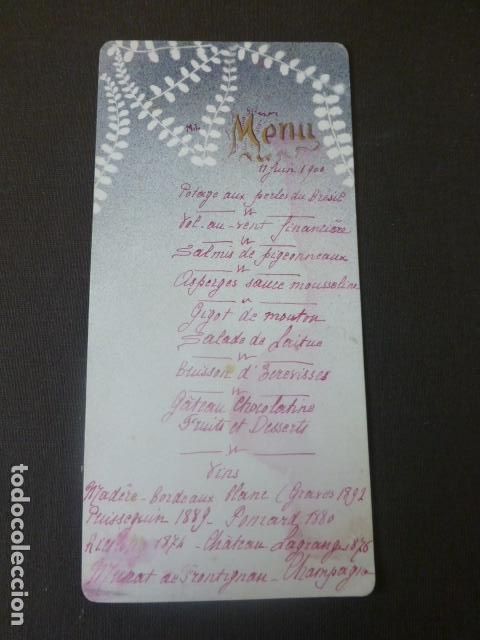 Menu
11 Juin 1900
Potage aux perles du Brésil
Vol-au-vent financière
Salmis de pigeonneaux
Asperges sauce mousseline
Gigot de mouton
Salade de Laitue
Buisson d'Ecrevisses
Gâteau Chocolatine
Fruits et Desserts
Vins
Madère - Bordeaux blanc (Graves 1892
Puisseguin 1889 - Pomard 1880
1874 - Château Lagrange 1876
Muscat de Frontignan - Champagne
todocoleccion